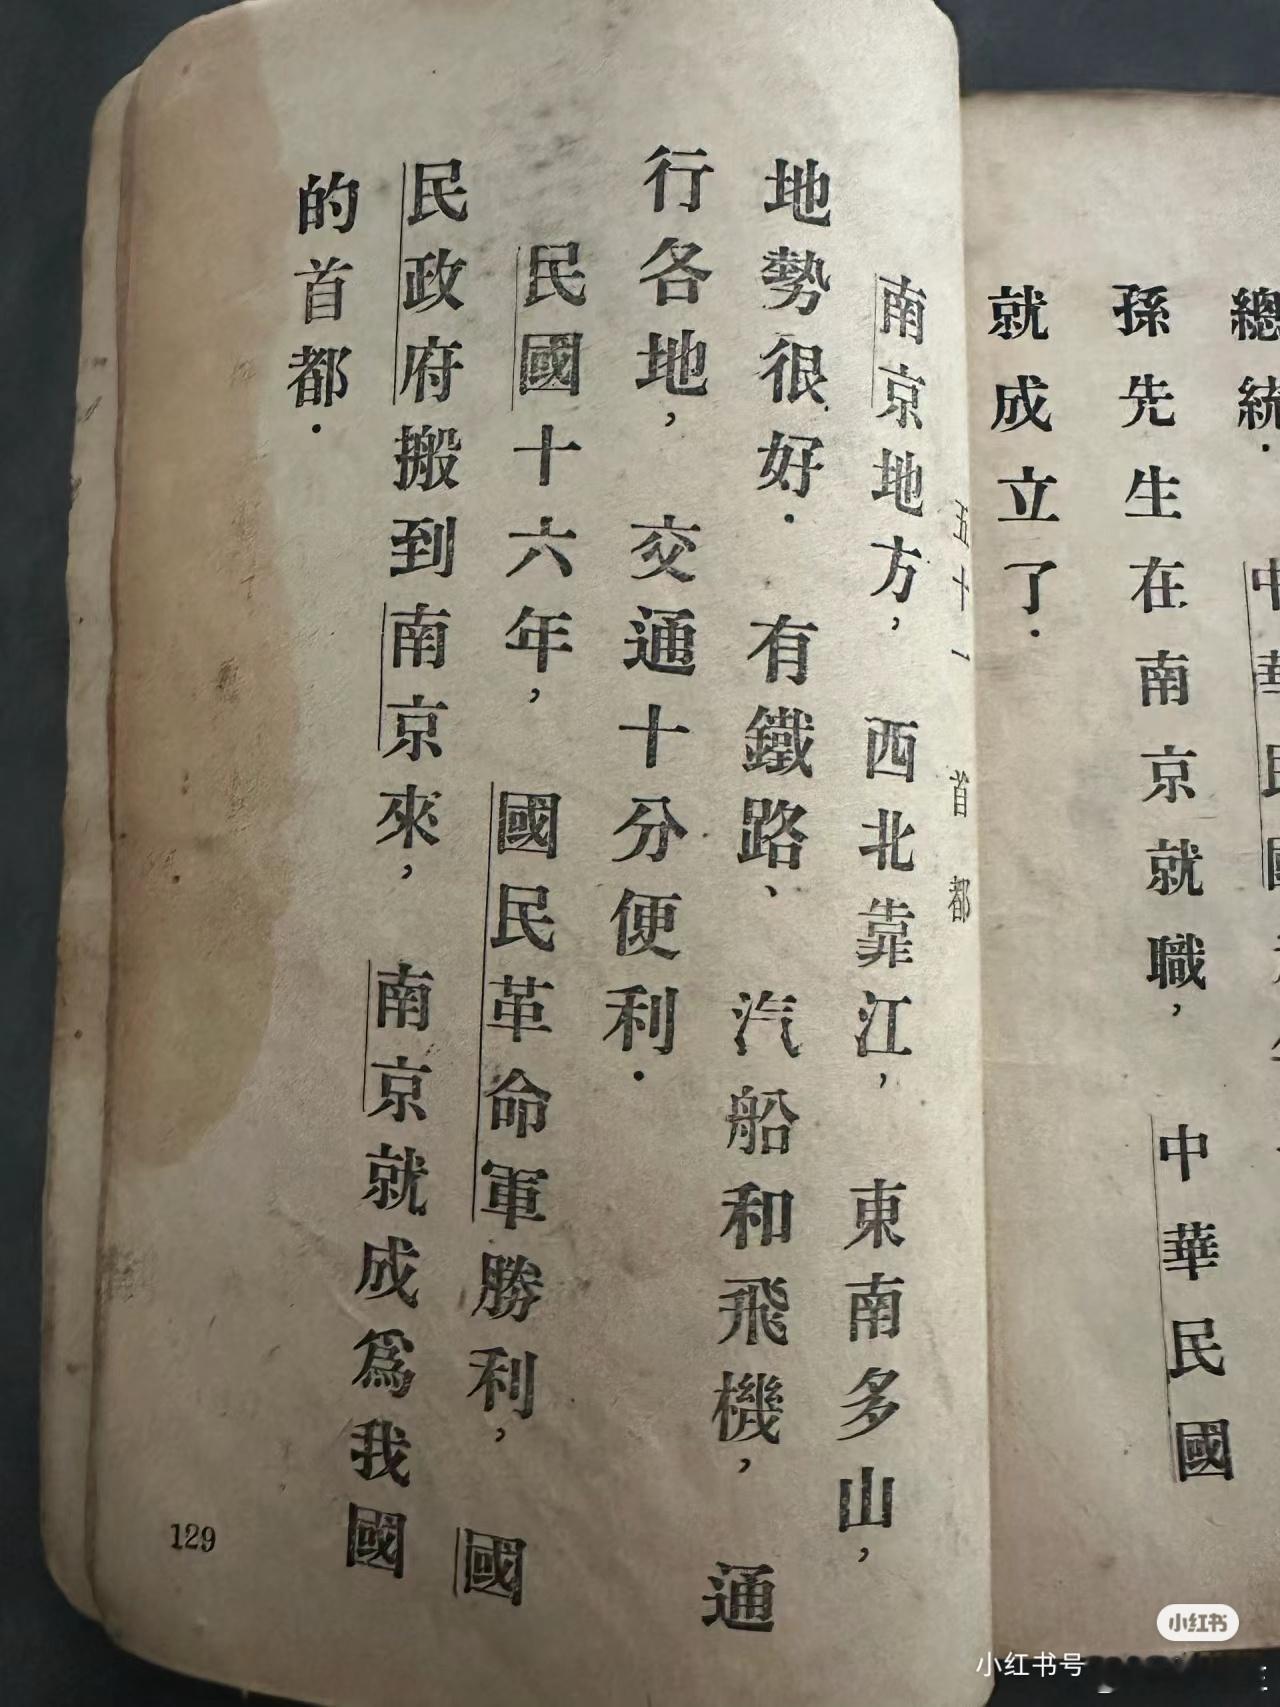 總統．　中華民國
孫先生在南京就職，　中華民國
就成立了．
五十一　首都
南京地方，　西北靠江，　東南多山，
地勢很好．　有鐵路、　汽船和飛機，　通
行各地，　交通十分便利．
民國十六年，　國民革命軍勝利，　國
民政府搬到南京來，　南京就成爲我國
的首都．
129
小红书
小红书号